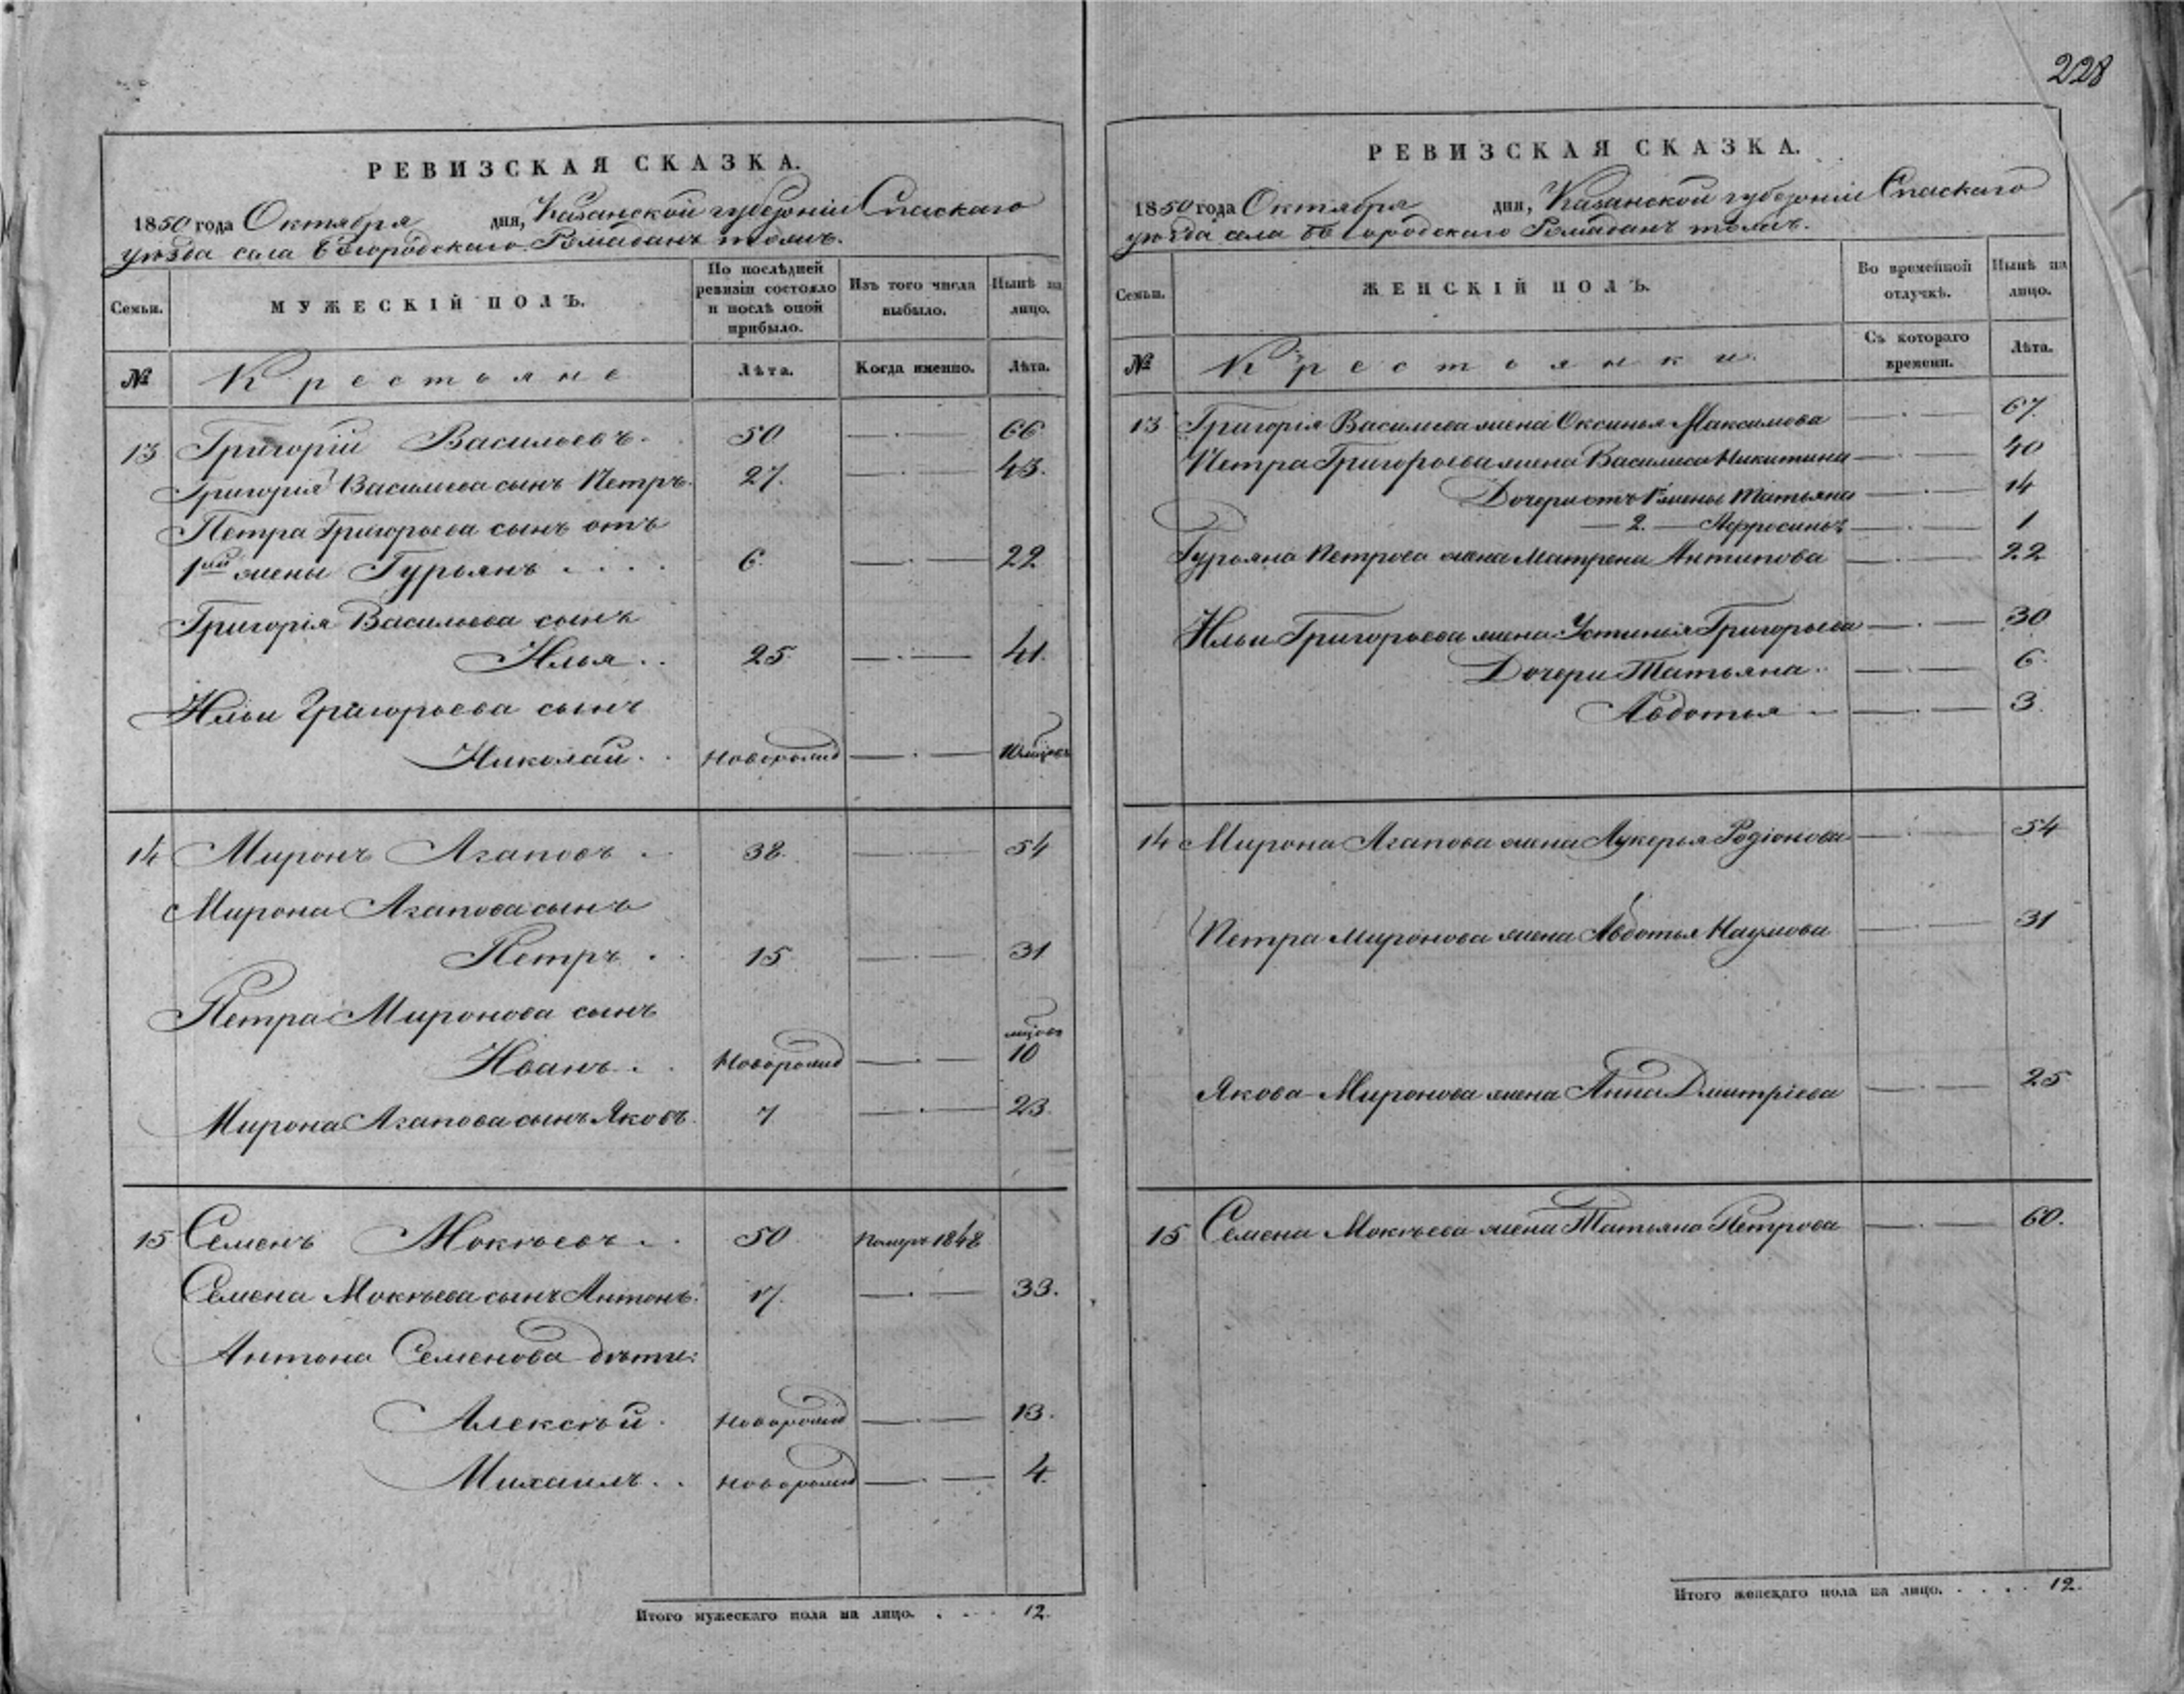 228
РЕВИЗСКАЯ СКАЗКА.
1850 года Октября дня, Казанской губерніи Спаскаго
уѣзда села Богородскаго Рамаданъ тожъ.
Семьи.
МУЖЕСКІЙ ПОЛЪ.
По послѣдней ревизіи состояло и послѣ оной прибыло.
Изъ того числа выбыло.
Нынѣ на лицо.
№
Крестьяне
Лѣта.
Когда именно.
Лѣта.
13 Григорій Васильевъ. 50 — . — 66
Григорія Васильева сынъ Петръ. 27. — . — 43.
Петра Григорьева сынъ отъ
1ой жены Гурьянъ . . . . 6. — . — 22
Григорія Васильева сынъ
Илья . . 25. — . — 41.
Ильи Григорьева сынъ
Николай . . Новорожд — . — 10 мѣсяц
14 Миронъ Агаповъ . 38. — . — 54
Мирона Агапова сынъ
Петръ . . 15 — . — 31
Петра Миронова сынъ
мѣсяц
Иванъ . . Новорожд — . — 10
Мирона Агапова сынъ Яковъ. 7 — . — 23.
15 Семенъ Мокѣевъ . . 50 Померъ 1848
Семена Мокѣева сынъ Антонъ. 17. — . — 33.
Антона Семенова дѣти:
Алексѣй. Новорожд — . — 13.
Михаилъ . . Новорожд — . — 4.
Итого мужескаго пола на лицо. . . . 12.
РЕВИЗСКАЯ СКАЗКА.
1850 года Октября дня, Казанской губерніи Спаскаго
уѣзда села Богородскаго Рамаданъ тожъ.
Семьи.
ЖЕНСКІЙ ПОЛЪ.
Во временной отлучкѣ.
Нынѣ на лицо.
№
Крестьянки.
Съ котораго времени.
Лѣта.
13 Григорія Васильева жена Оксинья Максимова — . — 67.
Петра Григорьева жена Василиса Никитина — . — 40
Дочери отъ 1 жены Татьяна — . — 14
— 2. — Афросинья — . — 1
Гурьяна Петрова жена Матрена Антипова — . — 22
Ильи Григорьева жена Устинья Григорьева — . — 30
Дочери Татьяна . — . — 6
Авдотья — . — 3.
14 Мирона Агапова жена Лукерья Родіонова — . — 54
Петра Миронова жена Авдотья Наумова — . — 31
Якова Миронова жена Анна Дмитріева — . — 25
15 Семена Мокѣева жена Татьяна Петрова — . — 60.
Итого женскаго пола на лицо. . . . . 12.